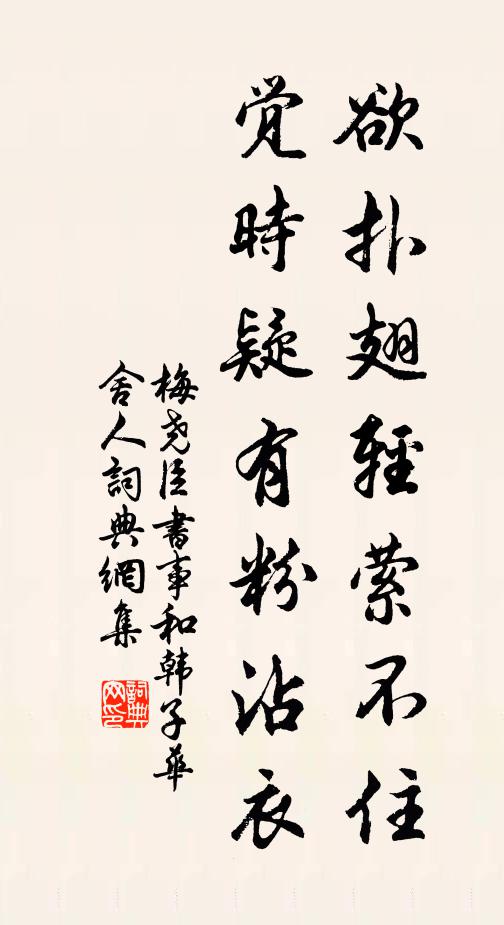 欲扑翅輕縈不住
覺時疑有粉沾衣
梅堯臣書事和韩子華
舍人詞典網集
詞典网印